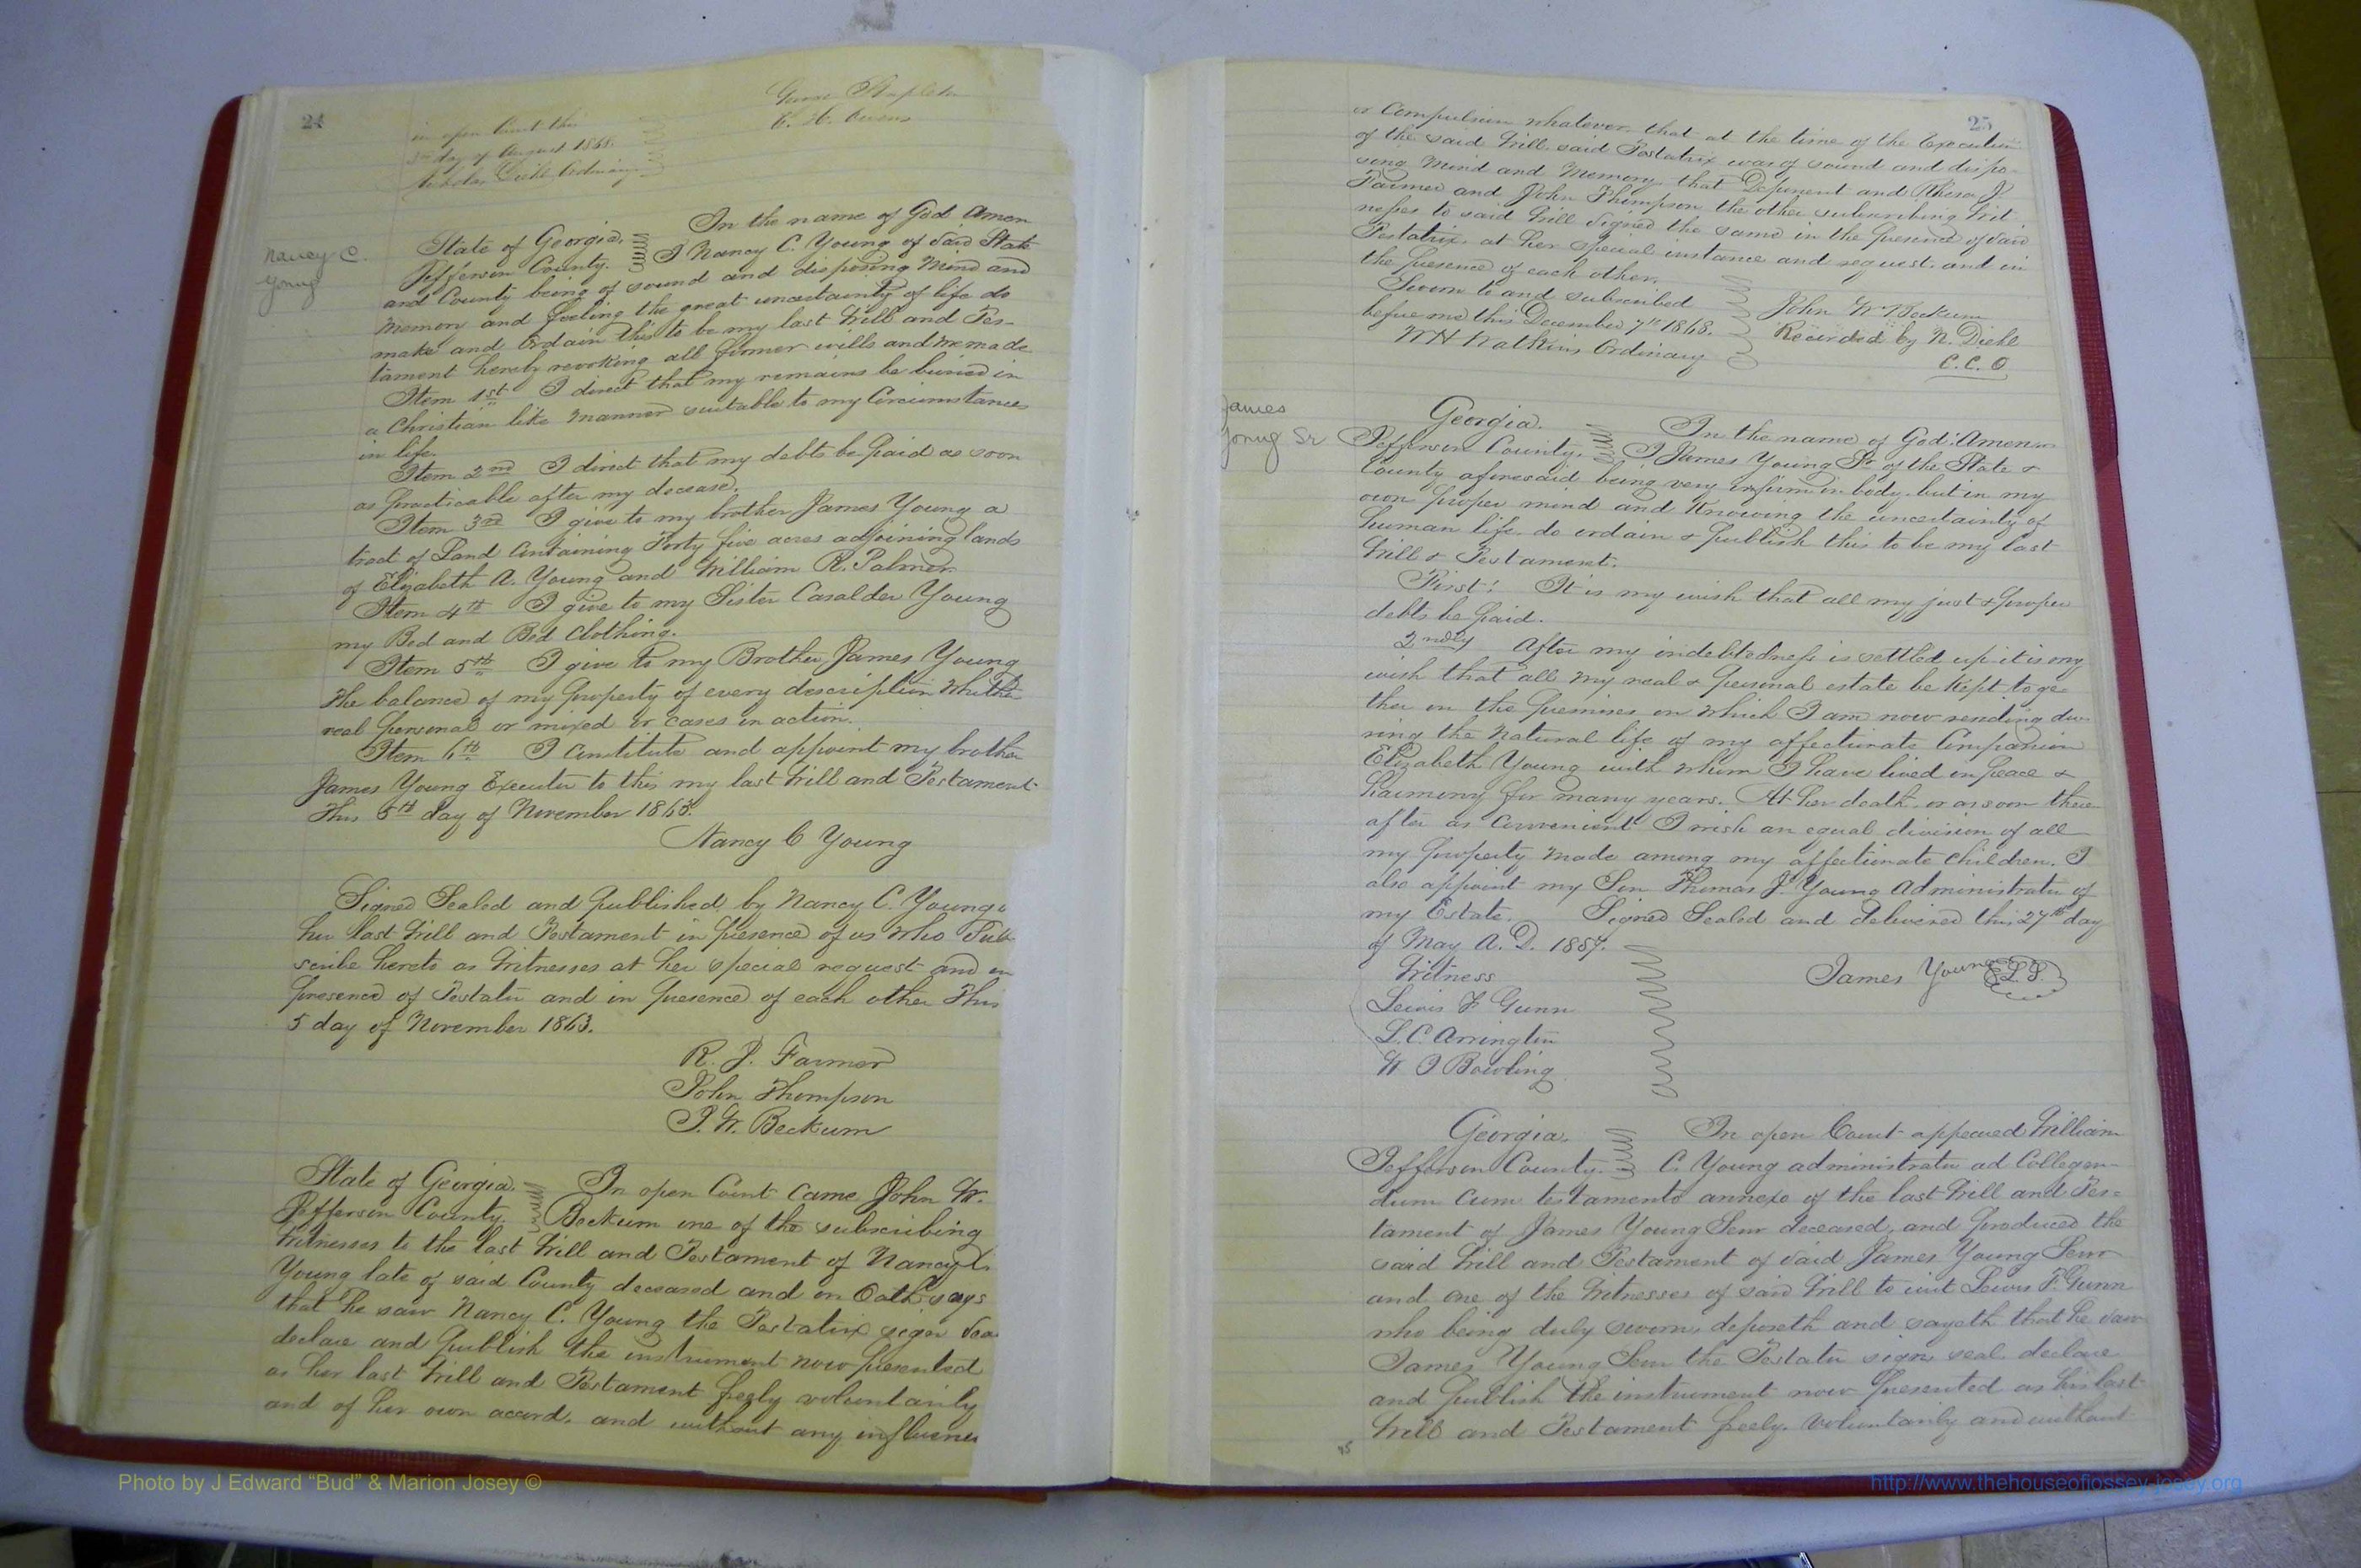 24
in open Court this
3rd day of August 1868.
Nicholas Diehl Ordinary
George Stapleton
Nancy C.
Young
In the name of God Amen
State of Georgia.
Jefferson County.
I Nancy C. Young of Said State
and County being of sound and disposing Mind and
Memory and feeling the great uncertainty of life do
make and Ordain this to be my last Will and Tes-
tament hereby revoking all former wills and me made
Item 1st I direct that my remains be buried in
a Christian like manner suitable to my Circumstances
in life.
Item 2nd I direct that my debts be paid as soon
as practicable after my decease.
Item 3rd I give to my brother James Young a
tract of Land Containing Forty five acres adjoining lands
of Elizabeth A. Young and William R. Palmer.
Item 4th I give to my Sister Casalder Young
my Bed and Bed Clothing.
Item 5th I give to my Brother James Young
the balance of my property of every description Whether
real personal or mixed or cases in action.
Item 6th I Constitute and appoint my brother
James Young Executor to this my last Will and Testament
This 5th day of November 1863.
Nancy C Young
Signed Sealed and published by Nancy C. Young
her last Will and Testament in presence of us who Sub-
scribe hereto as Witnesses at her special request and in
presence of Testator and in presence of each other This
5 day of November 1863.
R. J. Farmer
John Thompson
J. W. Beckum
State of Georgia.
Jefferson County.
In open Court Came John W.
Beckum one of the subscribing
Witnesses to the last Will and Testament of Nancy C.
Young late of said County deceased and on Oath says
that he saw Nancy C. Young the Testatrix sign Seal
declare and publish the instrument now presented
as her last Will and Testament freely voluntarily
and of her own accord. and without any influence
25
or Compulsion whatever. that at the time of the Execution
of the said Will. said Testatrix was of sound and dispo-
sing Mind and Memory. that Deponent and J.
Farmer and John Thompson the other subscribing Wit-
nesses to said Will signed the same in the presence of said
Testatrix. at her special instance and request. and in
the presence of each other.
Sworn to and subscribed
before me this December 7th 1868.
W H Watkins Ordinary
John W Beckum
Recorded by N. Diehl
C. C. O
James
Young Sr
Georgia.
Jefferson County.
In the name of God: Amen
I James Young Sr of the State &
County aforesaid being very infirm in body. but in my
own proper mind and Knowing the uncertainty of
human life. do ordain & publish this to be my last
Will & Testament.
First: It is my wish that all my just & proper
debts be paid.
2ndly After my indebtedness is settled up it is my
wish that all my real & personal estate be Kept toge-
ther on the premises on which I am now residing du-
ring the Natural life of my affectionate Companion
Elizabeth Young with whom I have lived in peace &
harmony for many years. At her death or as soon there-
after as Convenient I wish an equal division of all
my property made among my affectionate children. I
also appoint my Son Thomas J. Young Administrator of
my Estate. Signed Sealed and delivered this 27th day
of May A. D. 1857.
Witness
Lewis F Gunn
L. C. Arrington
W O Bowling
James Young L.S.
Georgia.
Jefferson County.
In open Court appeared William
C. Young administrator ad Collegen-
dum cum testamento annexo of the last Will and Tes-
tament of James Young Senr deceased, and produced the
said Will and Testament of said James Young Senr
and one of the Witnesses of said Will to wit Lewis F. Gunn
who being duly sworn, deposeth and sayeth that he saw
James Young Senr the Testator sign, seal declare
and publish the instrument now presented as his last
Will and Testament freely. Voluntarily and without
Photo by J Edward “Bud” & Marion Josey ©
http://www.thehouseofjossey-josey.org